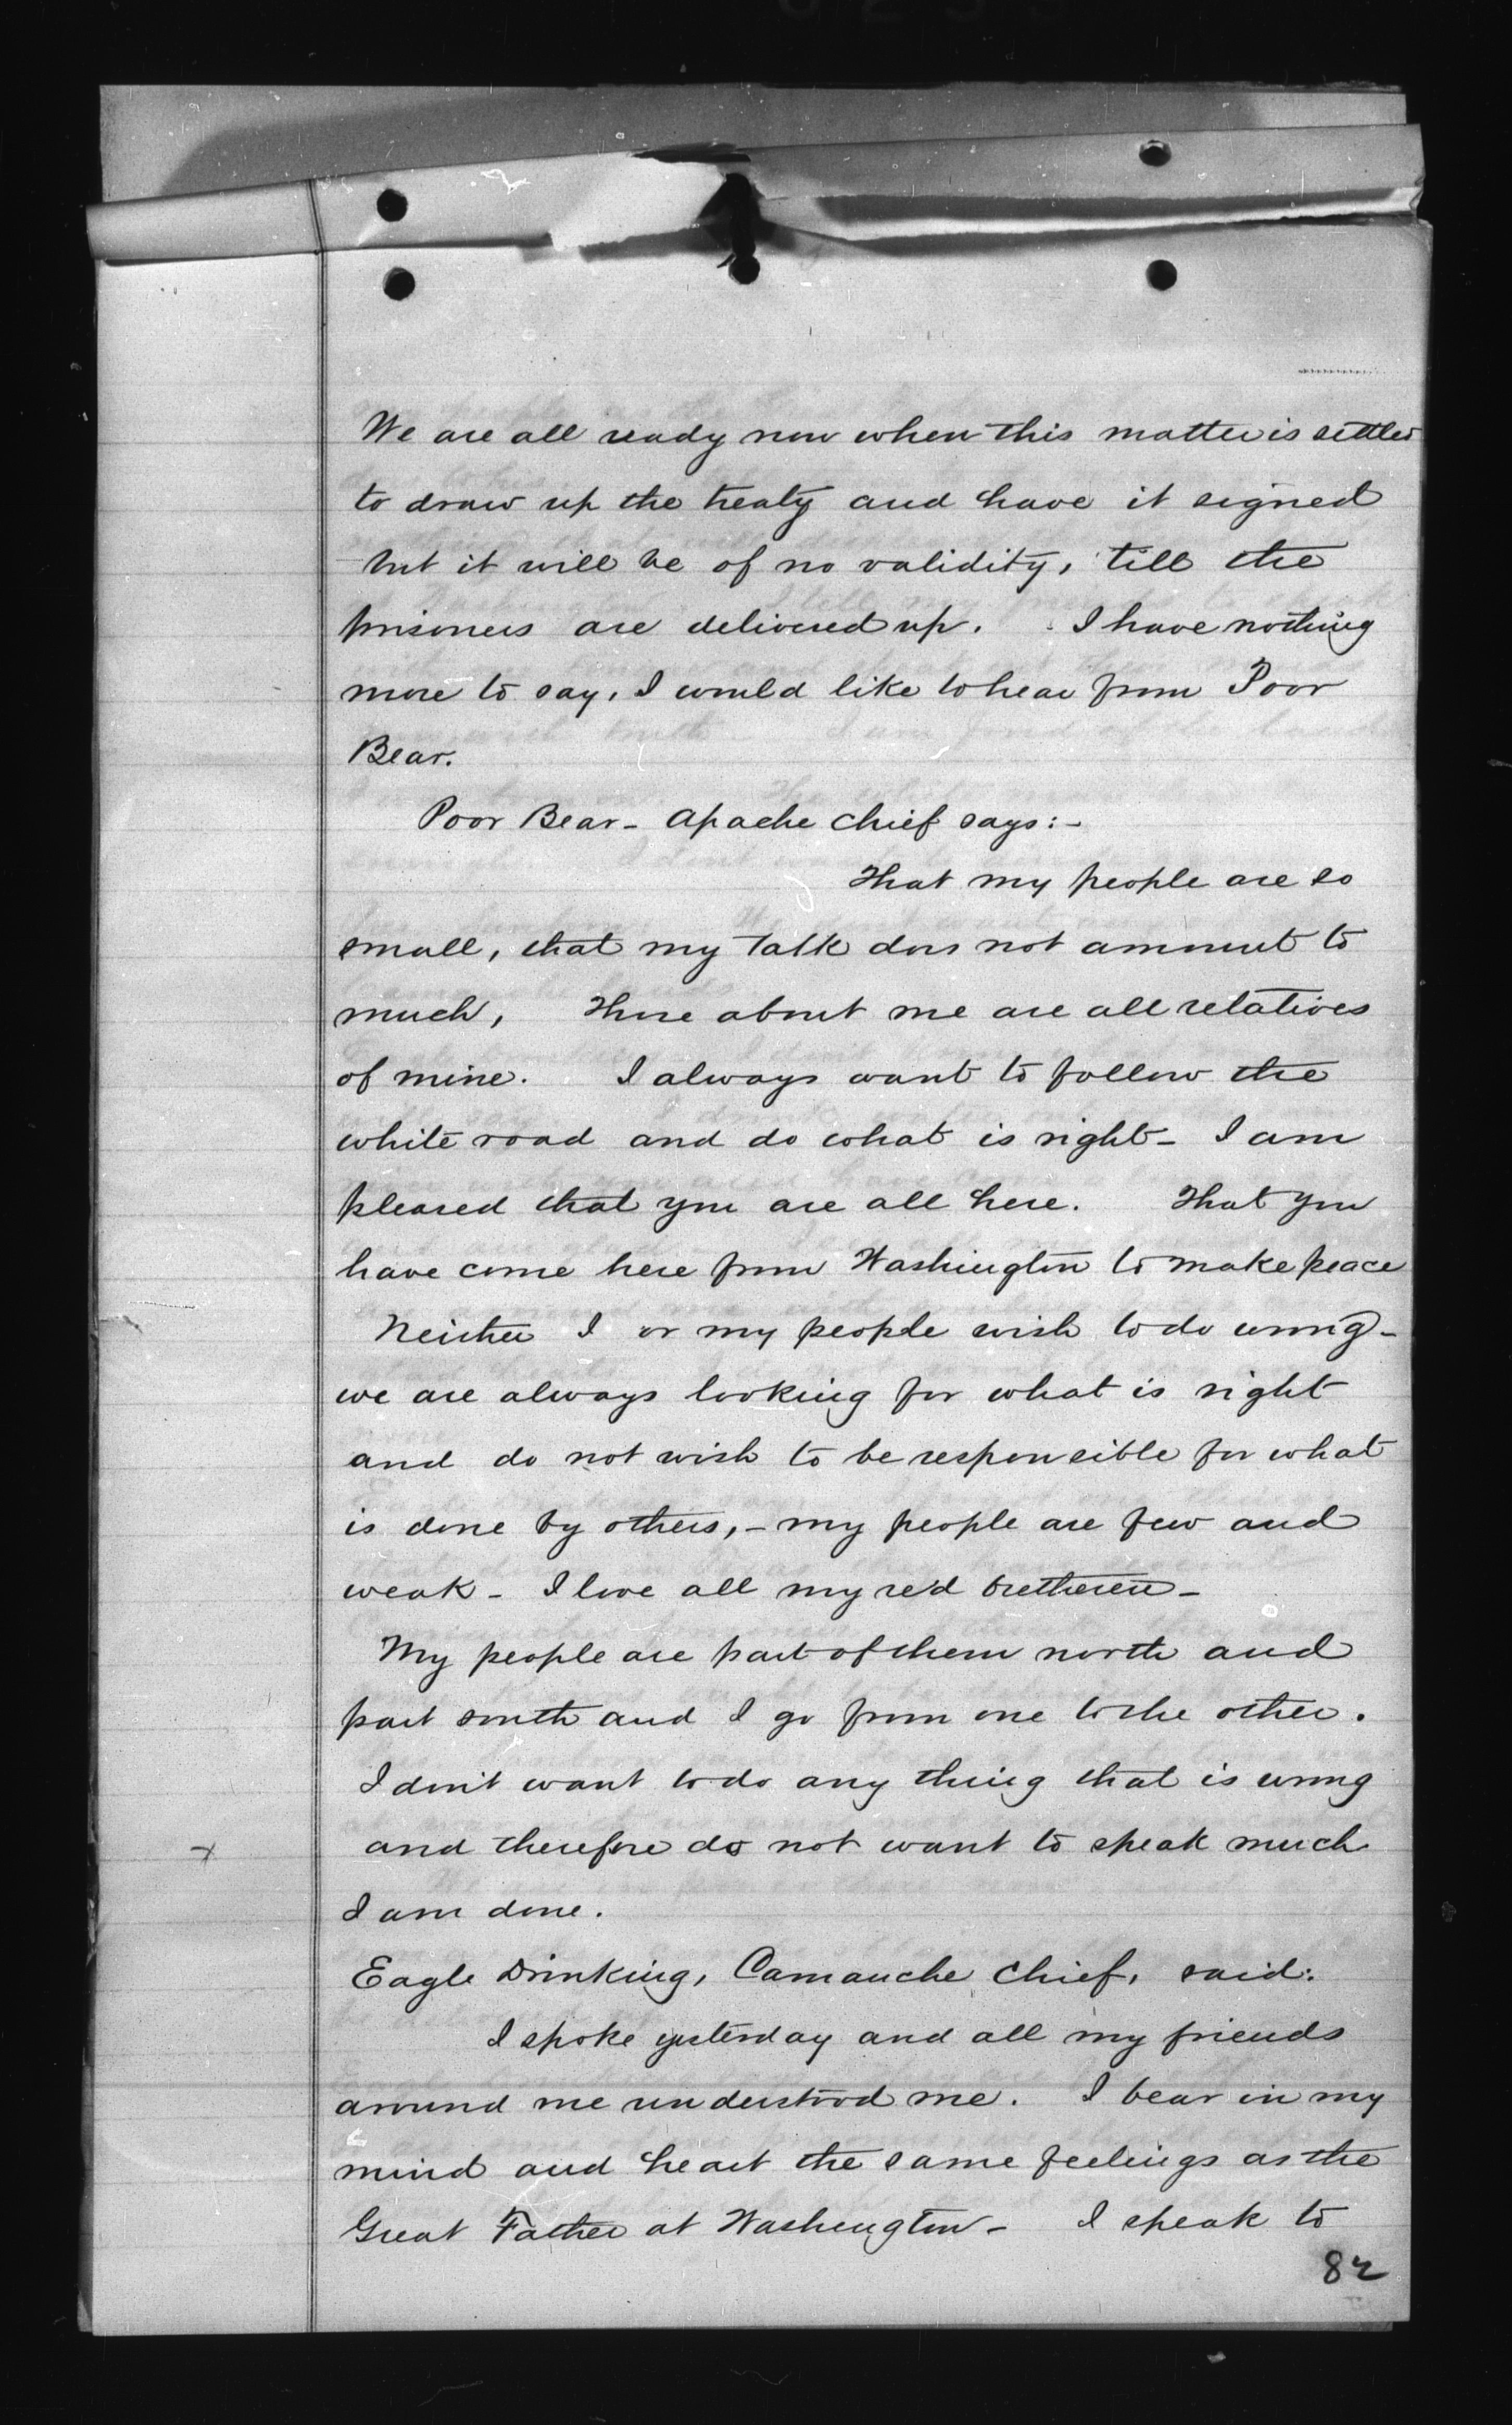 We are all ready now when this matter is settled
to draw up the treaty and have it signed
but it will be of no validity, till the
prisoners are delivered up. I have nothing
more to say, I would like to hear from Poor
Bear.
Poor Bear - Apache Chief says:-
That my people are so
small, that my talk does not amount to
much, Those about me are all relatives
of mine. I always want to follow the
white road and do what is right - I am
pleased that you are all here. That you
have come here from Washington to make peace
Neither I or my people wish to do wrong -
we are always looking for what is right
and do not wish to be responsible for what
is done by others, - my people are few and
weak - I love all my red bretheren -
My people are part of them north and
part south and I go from one to the other.
I don't want to do any thing that is wrong
and therefore do not want to speak much
I am done.
Eagle Drinking, Camanche Chief, said:
I spoke yesterday and all my friends
around me understood me. I bear in my
mind and heart the same feelings as the
Great Father at Washington - I speak to
82